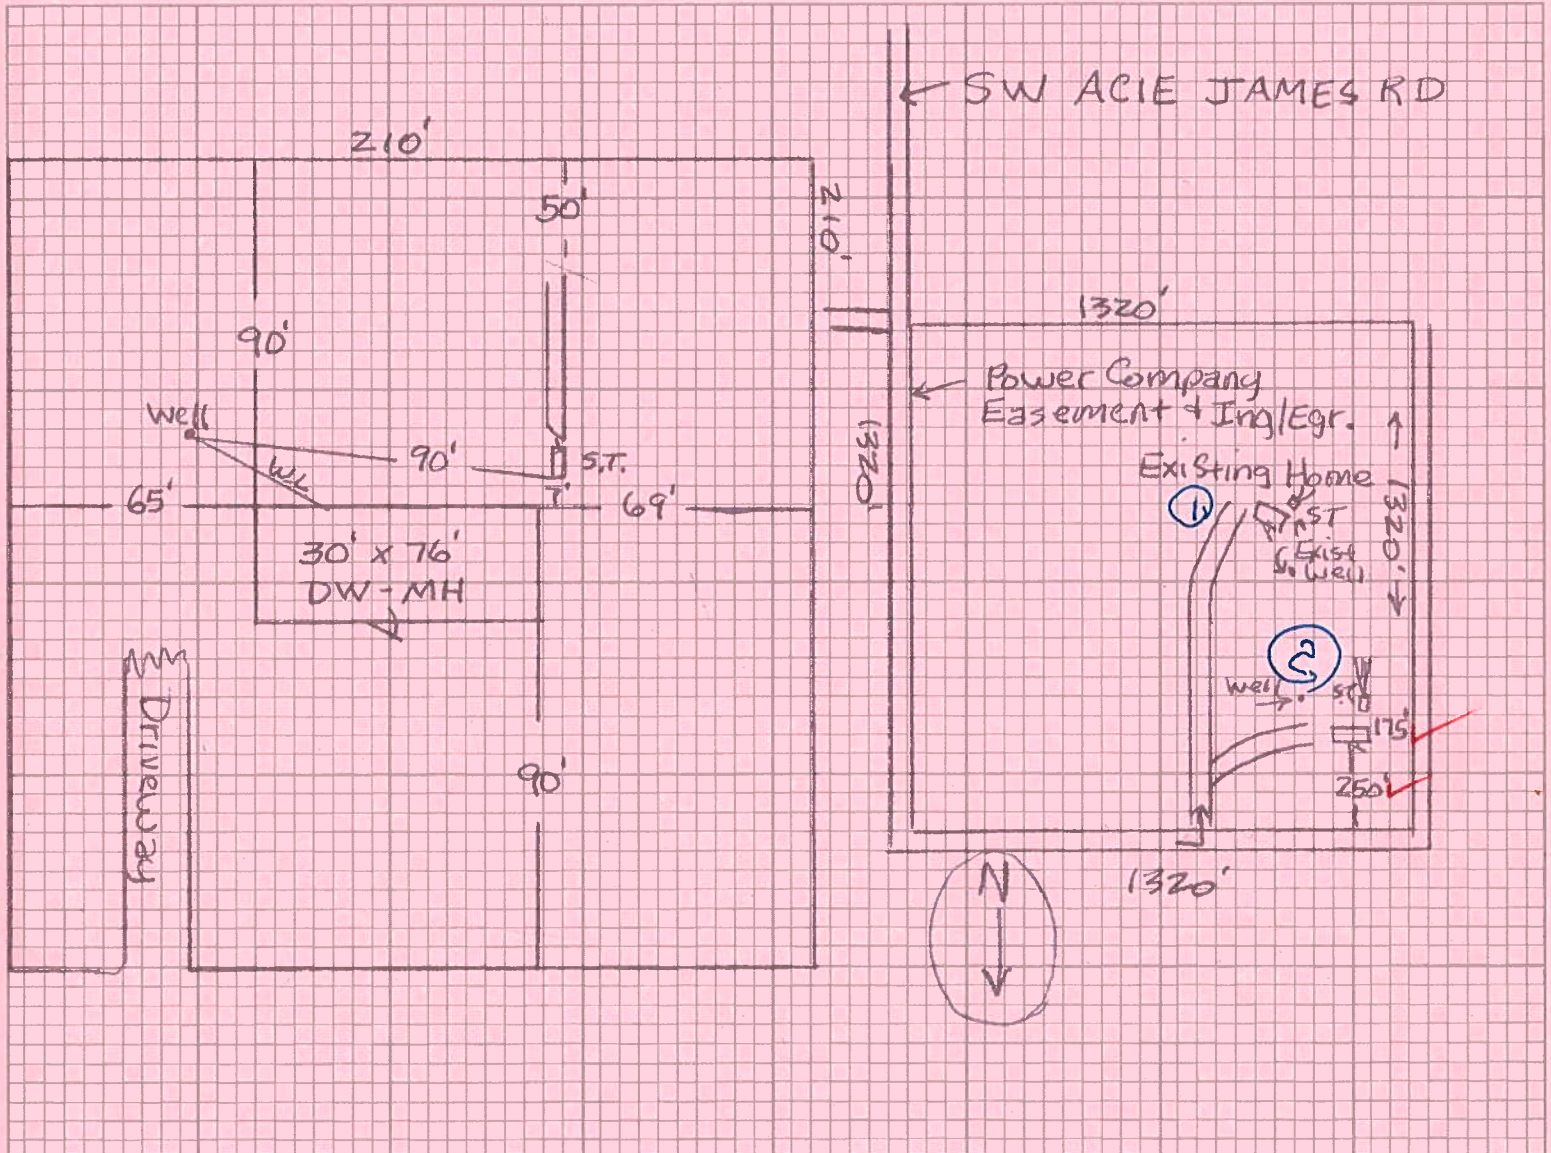 SW ACIE JAMES RD
210'
50'
210'
90'
Well
90'
S.T.
WL
7'
65'
69'
30' x 76'
DW - MH
Driveway
90'
1320'
Power Company
Easement & Ing/Egr.
1320'
Existing Home
1
ST
Exist
Well
1320'
2
Well
S.T.
175'
250'
1320'
N